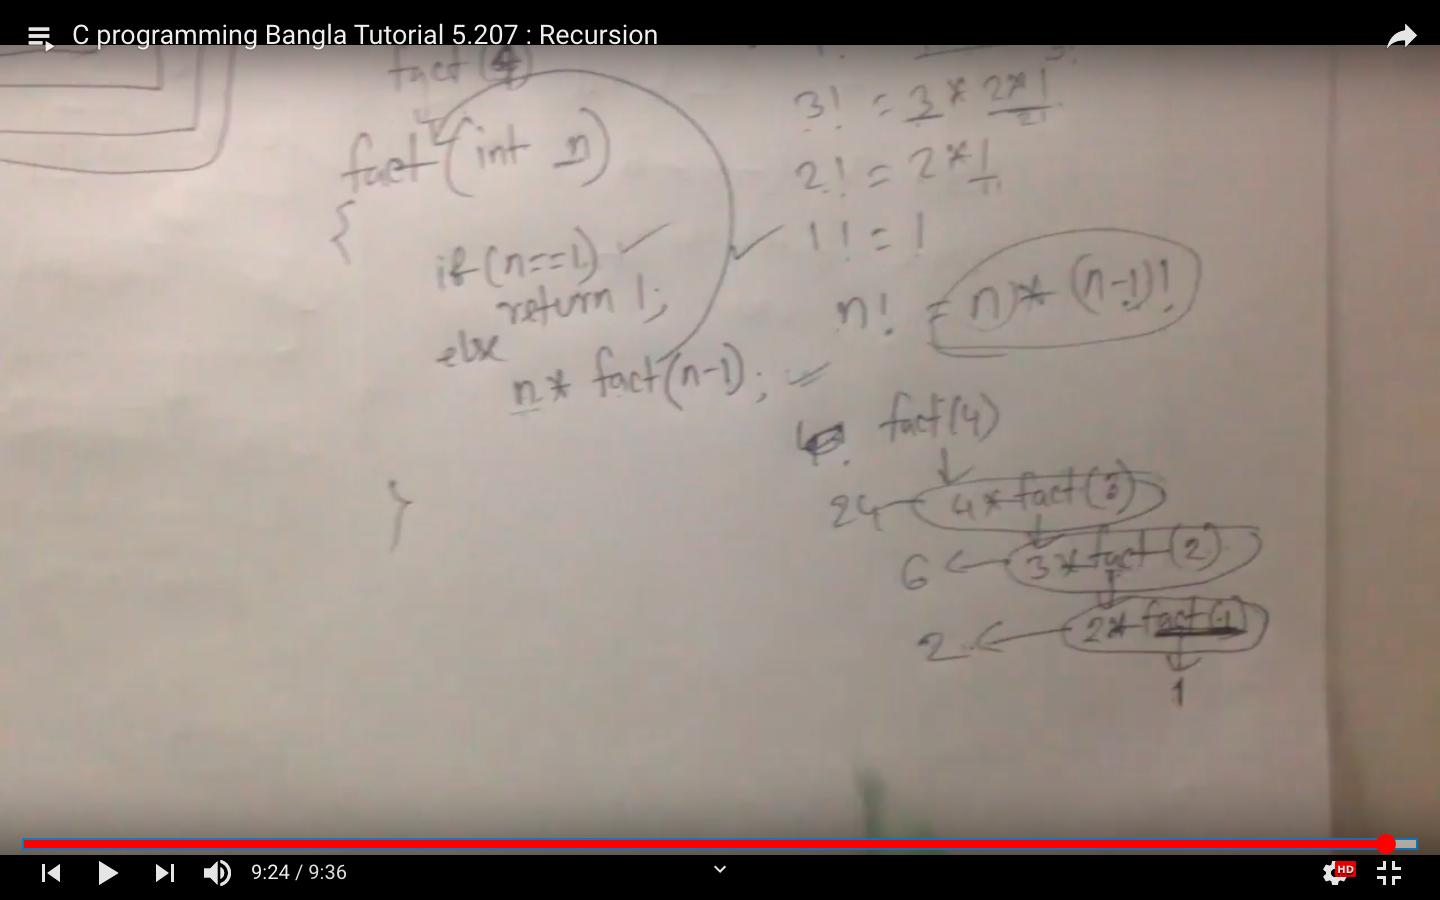 C programming Bangla Tutorial 5.207 : Recursion
fact(4)
fact(int n)
{
if(n==1)
return 1;
else
n* fact(n-1);
}
3! = 3 * 2*1
2!
2! = 2*1
1! = 1
n! = n * (n-1)!
fact(4)
24 4* fact(3)
6 3* fact(2)
2 2* fact(1)
1
9:24 / 9:36
HD